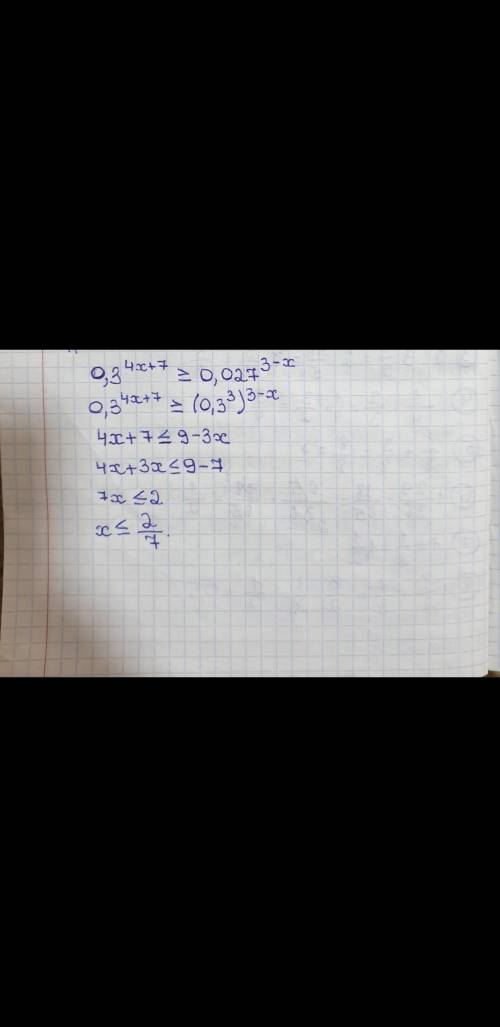 0,3^{4x+7} ≥ 0,027^{3-x}
0,3^{4x+7} ≥ (0,3^3)^{3-x}
4x+7 ≤ 9-3x
4x+3x ≤ 9-7
7x ≤ 2
x ≤ \frac{2}{7}.